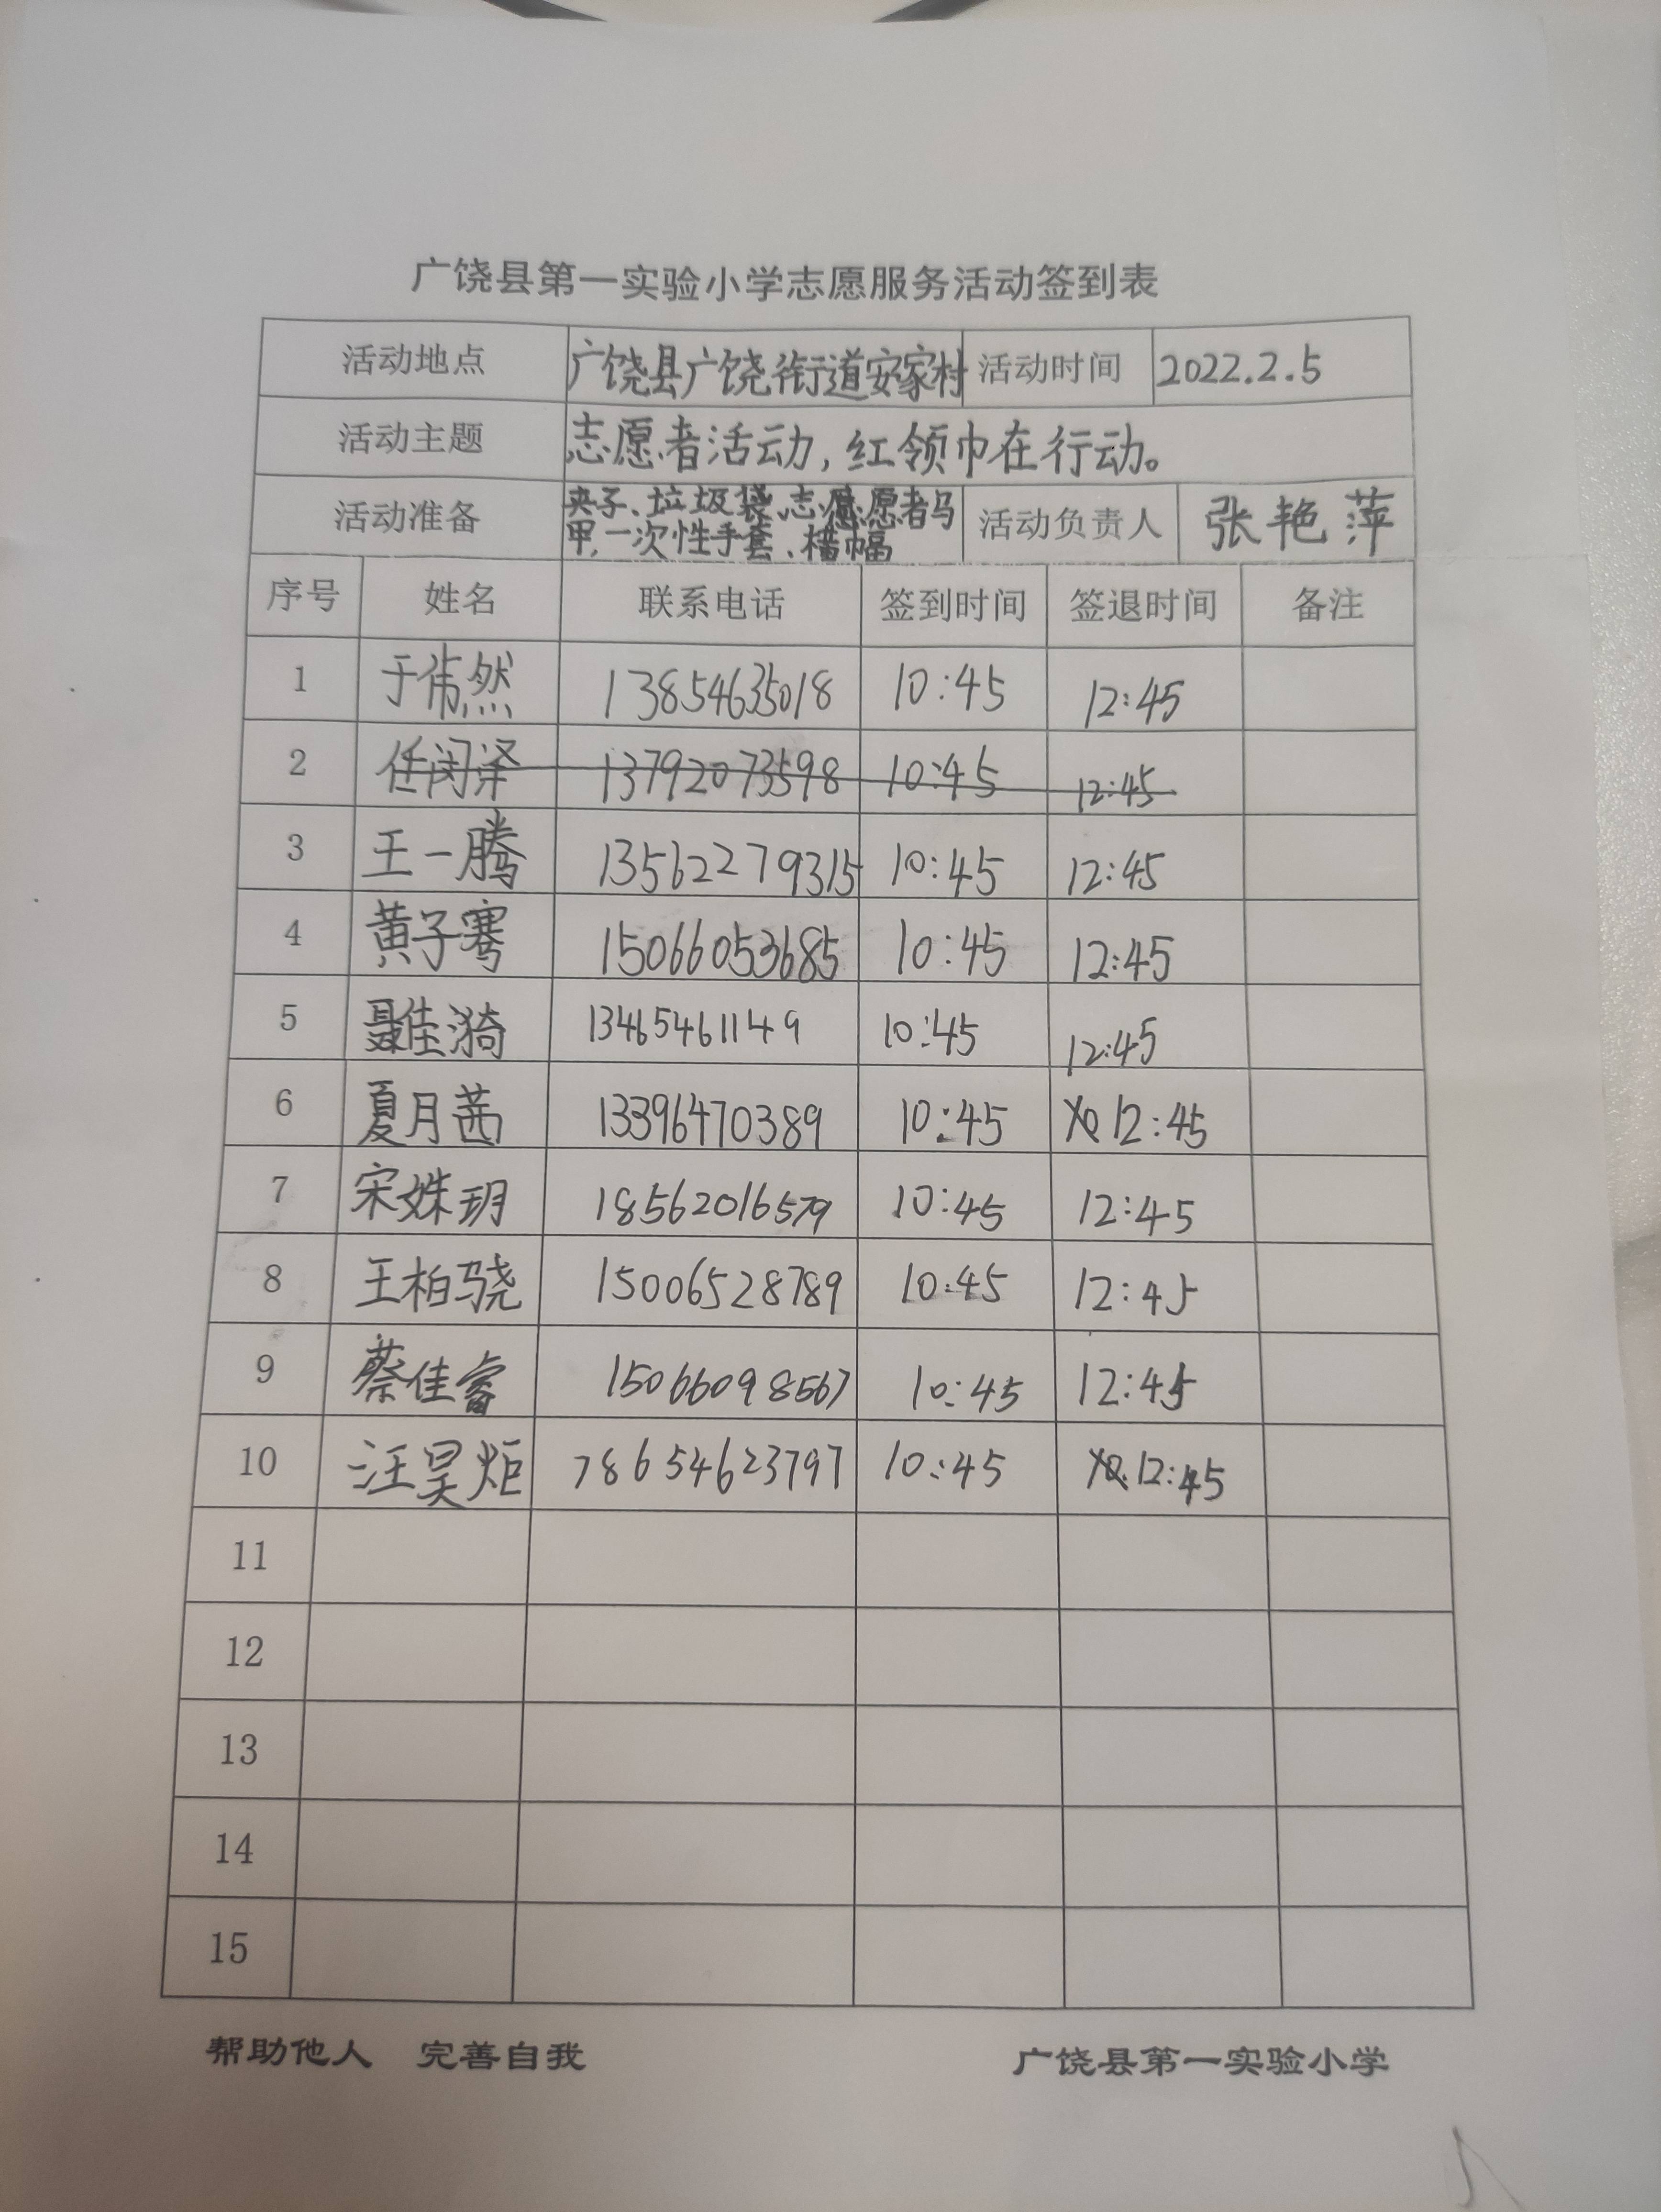 广饶县第一实验小学志愿服务活动签到表
活动地点 广饶县广饶街道安家村 活动时间 2022.2.5
活动主题 志愿者活动,红领巾在行动。
活动准备 夹子、垃圾袋、志愿者马
甲、一次性手套、横幅 活动负责人 张艳萍
序号 姓名 联系电话 签到时间 签退时间 备注
1 于苇然 13854635018 10:45 12:45
2 任闵泽 13792073598 10:45 12:45
3 王一腾 13562279315 10:45 12:45
4 黄子骞 15066053685 10:45 12:45
5 聂佳漪 13465461149 10:45 12:45
6 夏月茜 13396470389 10:45 12:45
7 宋姝玥 18562016579 10:45 12:45
8 王柏骁 15006528789 10:45 12:45
9 蔡佳睿 15066098567 10:45 12:45
10 汪昊炬 78654623797 10:45 12:45
11
12
13
14
15
帮助他人 完善自我 广饶县第一实验小学